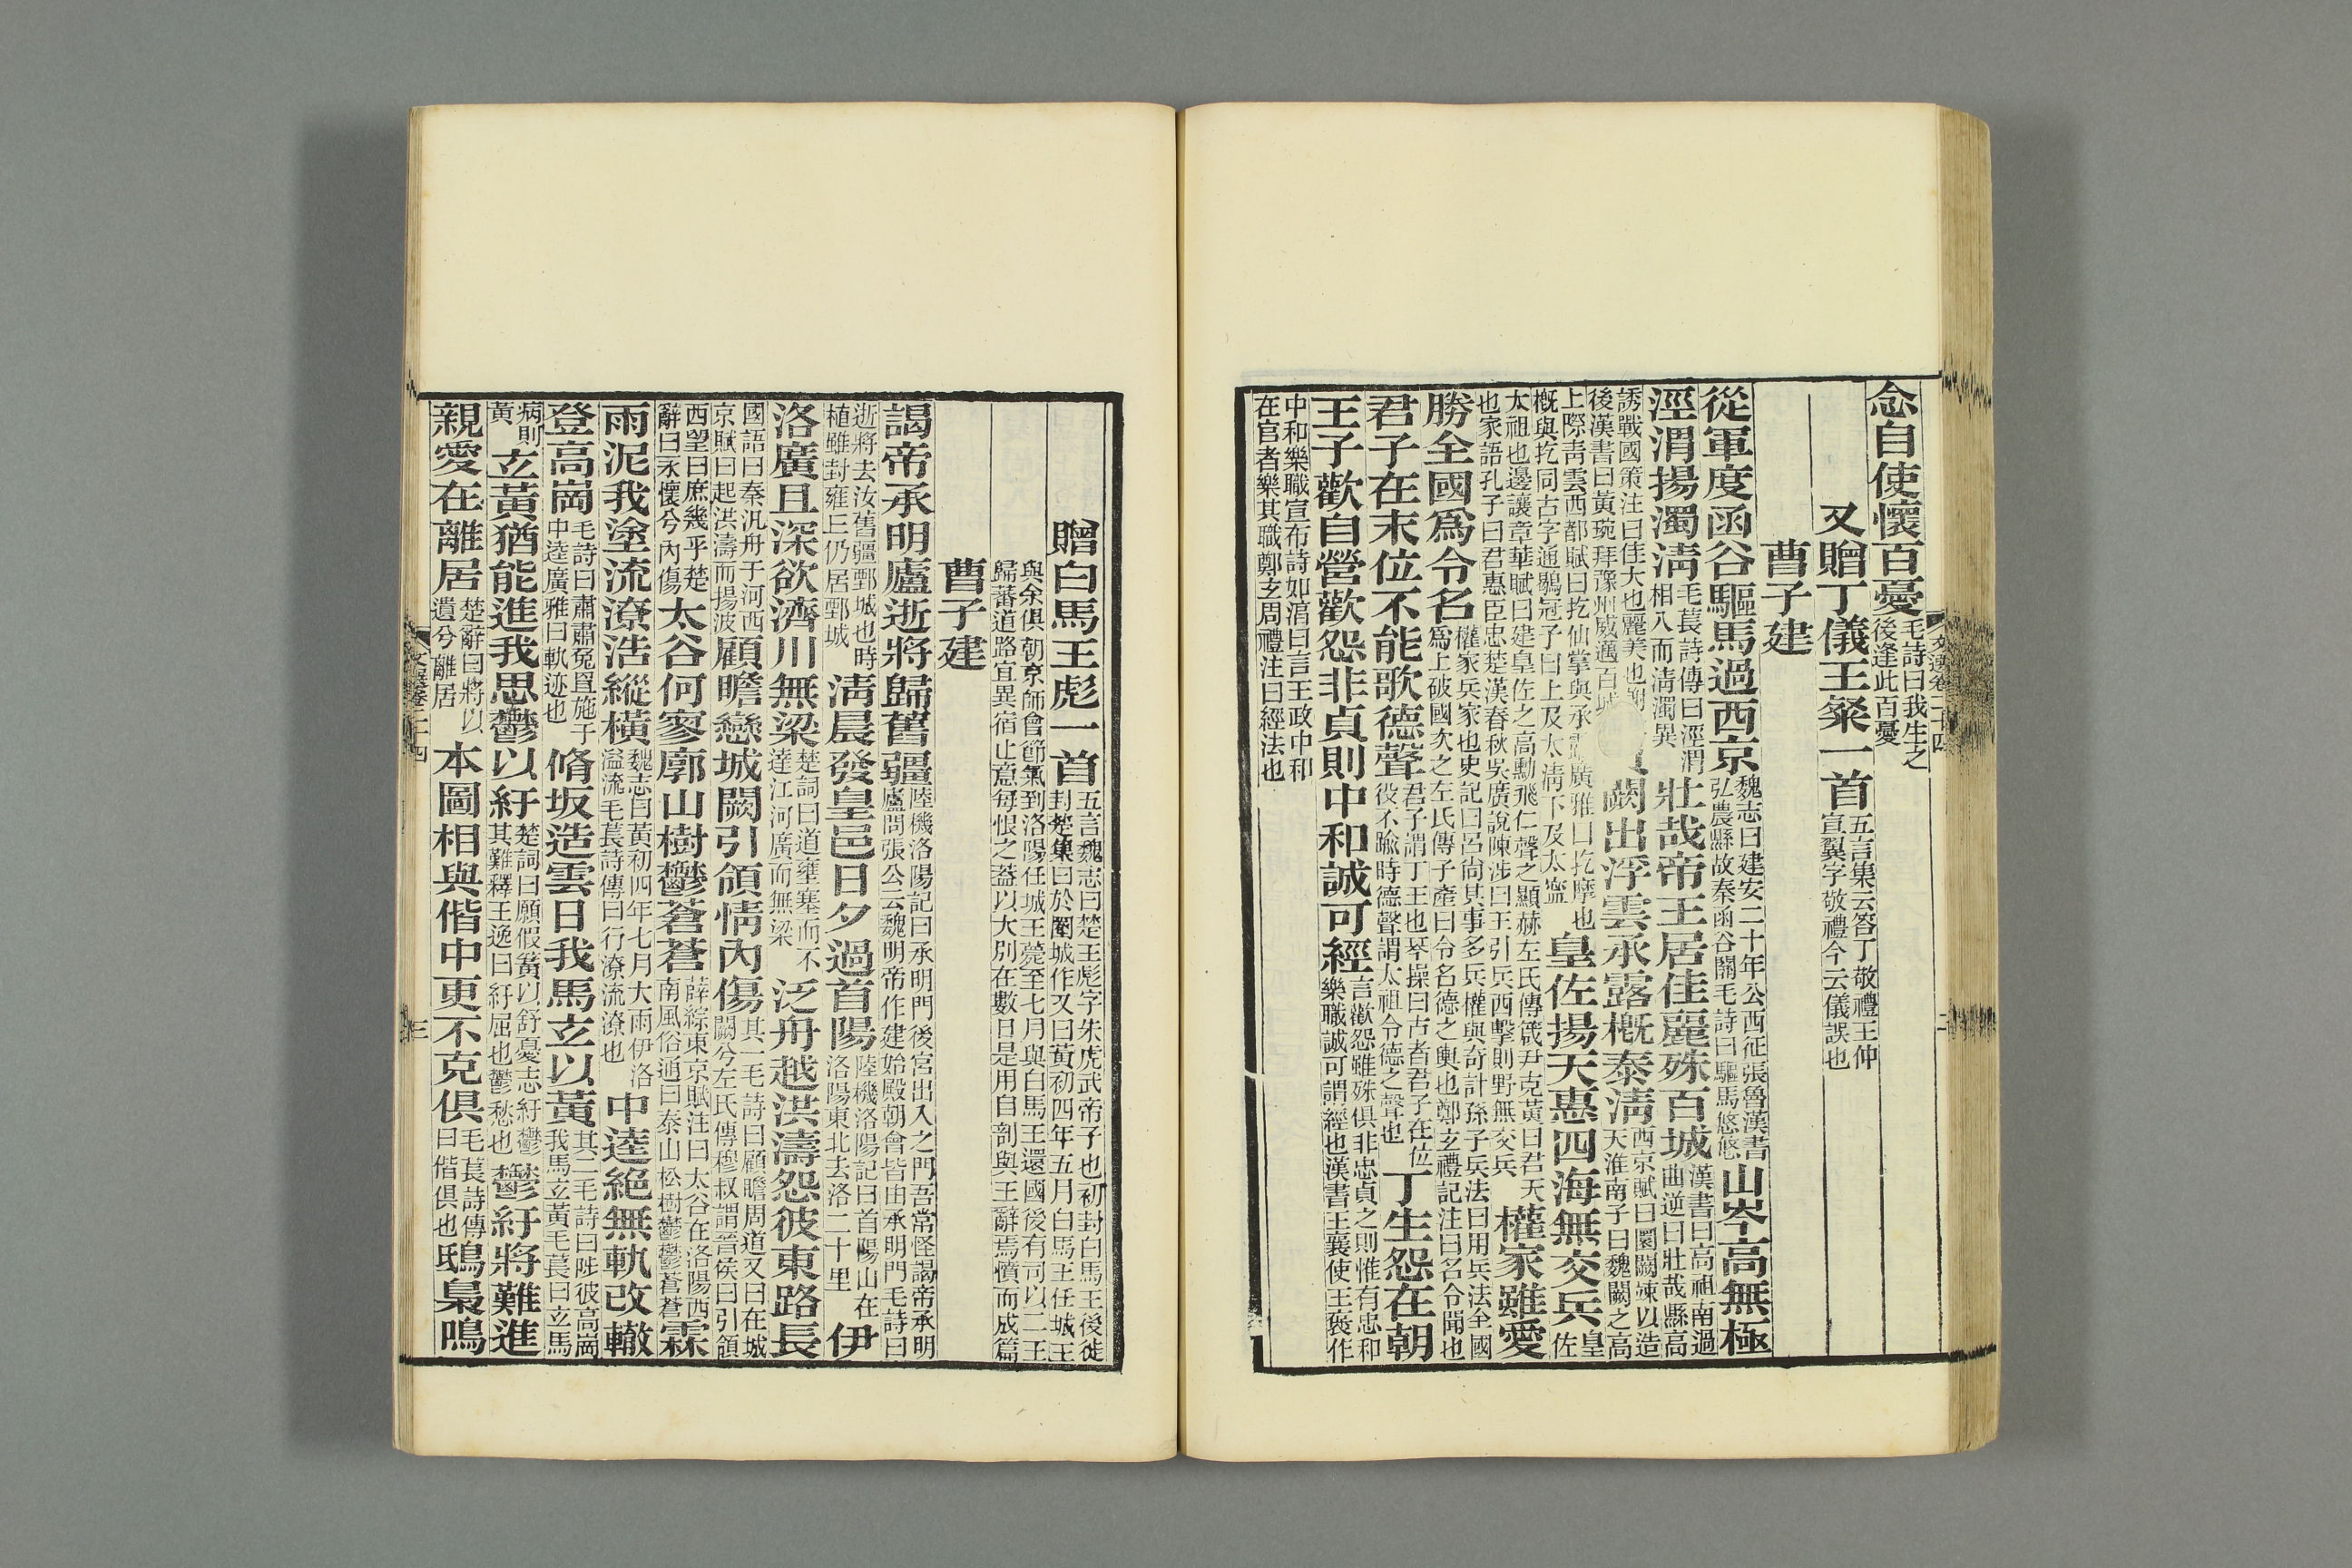 念自使懷百憂毛詩曰我生之後逢此百憂
又贈丁儀王粲一首五言集云答丁敬禮王仲宣翼字敬禮今云儀誤也
曹子建
從軍度函谷驅馬過西京魏志曰建安二十年公西征張魯漢書弘農縣故秦函谷關毛詩曰驅馬悠悠山岑高無極
涇渭揚濁淸毛萇詩傳曰涇渭相入而淸濁異壯哉帝王居佳麗殊百城漢書曰高祖南過曲逆曰壯哉縣高
誘戰國策注曰佳大也麗美也後漢書曰黃琬拜豫州威邁百城闕出浮雲承露槪泰淸西京賦曰圜闕竦以造天淮南子曰魏闕之高
上際靑雲西都賦曰抗仙掌與承廣雅曰扢摩也槪與扢同古字通鶡冠子曰上及太淸下及太寧皇佐揚天惠四海無交兵皇佐
太祖也邊讓章華賦曰建皇佐之高勳飛仁聲之顯赫左氏傳箴尹克黃曰君天也家語孔子曰君惠臣忠楚漢春秋吳廣說陳涉曰王引兵西擊則野無交兵權家雖愛
勝全國爲令名權家兵家也史記曰呂尚其事多兵權與奇計孫子兵法曰用兵法全國爲上破國次之左氏傳子產曰令名德之輿也鄭玄禮記注曰名令聞也
君子在末位不能歌德聲君子謂丁王也琴操曰古者君子在位役不踰時德聲謂太祖令德之聲也丁生怨在朝
王子歡自營歡怨非貞則中和誠可經言歡怨雖殊俱非忠貞之則惟有忠和樂職誠可謂經也漢書王襄使王褒作
中和樂職宣布詩如淯曰言王政中和在官者樂其職鄭玄周禮注曰經法也
贈白馬王彪一首五言魏志曰楚王彪字朱虎武帝子也初封白馬王後徙封楚集曰於圈城作又曰黃初四年五月白馬王任城王
與余俱朝京師會節氣到洛陽任城王薨至七月與白馬王還國後有司以二王歸蕃道路宜異宿止意每恨之葢以大別在數日是用自剖與王辭焉憤而成篇
曹子建
謁帝承明廬逝將歸舊疆陸機洛陽記曰承明門後宮出入之門吾常怪謁帝承明廬問張公云魏明帝作建始殿朝會皆由承明門毛詩曰
逝將去汝舊疆鄄城也時植雖封雍丘仍居鄄城淸晨發皇邑日夕過首陽陸機洛陽記曰首陽山在洛陽東北去洛二十里伊
洛廣且深欲濟川無梁楚詞曰道壅塞而不達江河廣而無梁泛舟越洪濤怨彼東路長
國語曰秦汎舟于河西京賦曰起洪濤而揚波顧瞻戀城闕引領情內傷其一毛詩曰顧瞻周道又曰在城闕兮左氏傳穆叔謂晉侯曰引領
西望曰庶幾乎楚辭曰永懷兮內傷太谷何寥廓山樹鬱蒼蒼薛綜東京賦注曰太谷在洛陽西南風俗通曰泰山松樹鬱鬱蒼蒼霖
雨泥我塗流潦浩縱橫魏志曰黃初四年七月大雨伊洛溢流毛萇詩傳曰行潦流潦也中逵絕無軌改轍
登高崗毛詩曰肅肅兔罝施于中逵廣雅曰軌迹也脩坂造雲日我馬玄以黃其二毛詩曰陟彼高崗我馬玄黃毛萇曰玄馬
病則黃玄黃猶能進我思鬱以紆楚詞曰願假簧以舒憂志紆鬱其難釋王逸曰紆屈也鬱愁也鬱紆將難進
親愛在離居楚辭曰將以遺兮離居本圖相與偕中更不克俱毛萇詩傳曰偕俱也鴟梟鳴
文選卷二十四
三